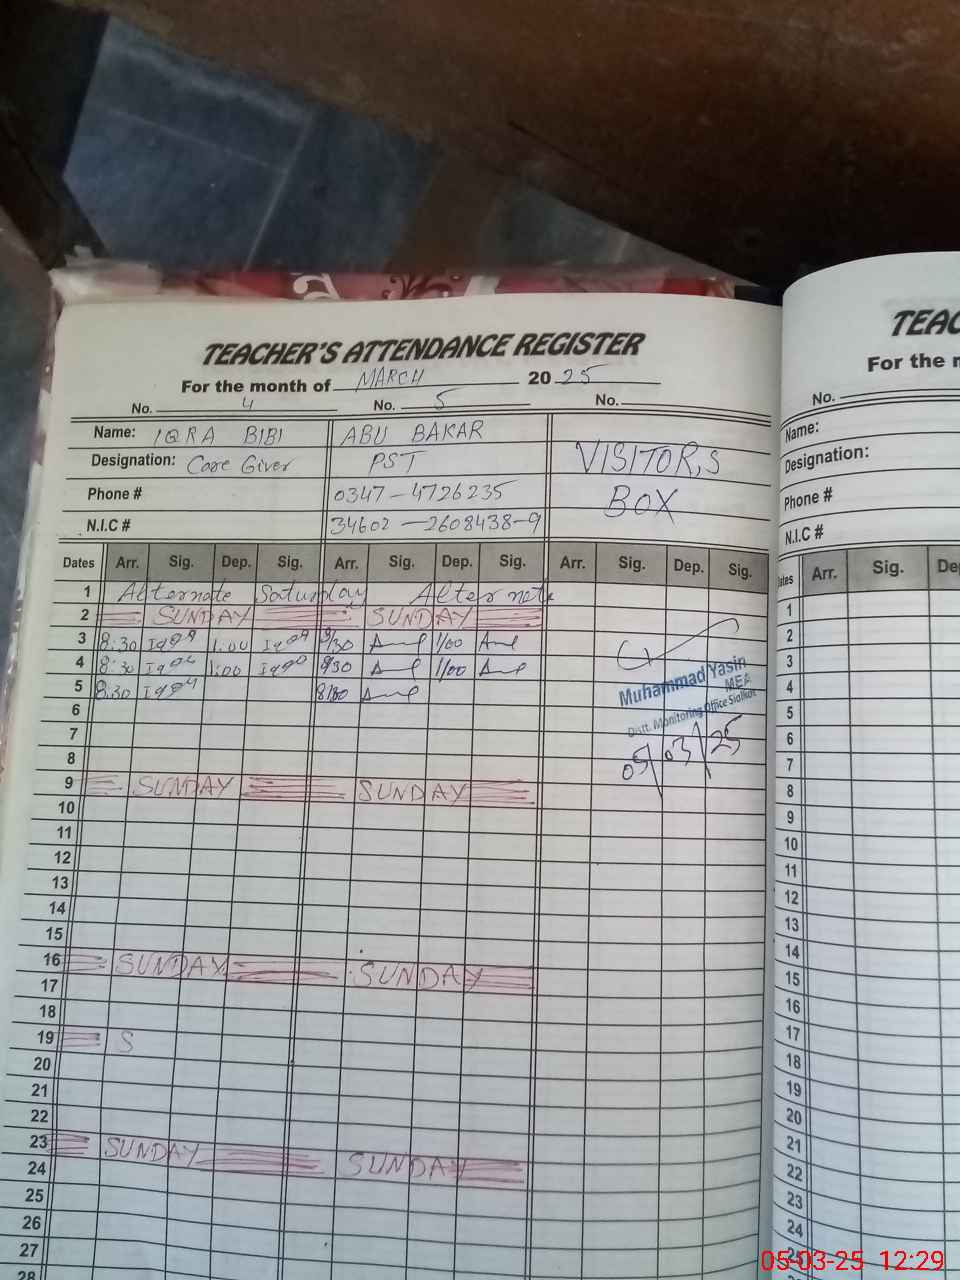 TEACHER'S ATTENDANCE REGISTER
For the month of MARCH 2025
No. 4 No. 5 No.
Name: IQRA BIBI ABU BAKAR
Designation: Care Giver PST VISITOR,S
Phone # 0347-4726235 BOX
N.I.C # 34602-2608438-9
Dates Arr. Sig. Dep. Sig. Arr. Sig. Dep. Sig. Arr. Sig. Dep. Sig.
1 Alternate Saturday Alternate
2 SUNDAY SUNDAY
3 8:30 1:00 8/30 1/00
4 8:30 1:00 8/30 1/00
5 8:30
6
7
8
9 SUNDAY SUNDAY
10
11
12
13
14
15
16 SUNDAY SUNDAY
17
18
19 S
20
21
22
23 SUNDAY SUNDAY
24
25
26
27
28
Muhammad Yasin
MEA
Distt. Monitoring Office Sialkot
05/03/25
TEAC
For the m
No.
Name:
Designation:
Phone #
N.I.C #
ates Arr. Sig. De
1
2
3
4
5
6
7
8
9
10
11
12
13
14
15
16
17
18
19
20
21
22
23
24
25
05-03-25 12:29